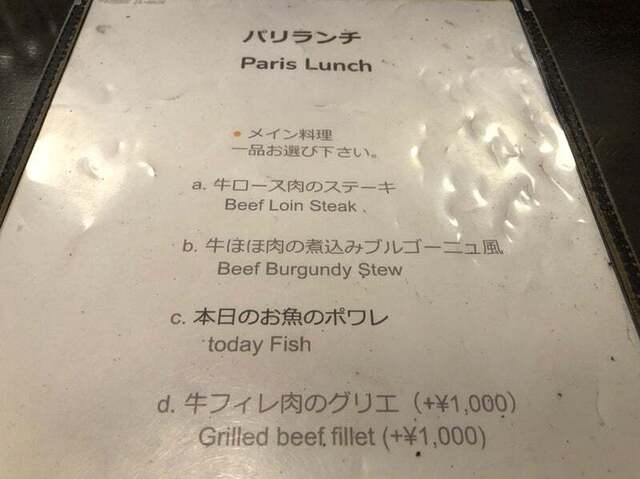 パリランチ
Paris Lunch
メイン料理
一品お選び下さい。
a. 牛ロース肉のステーキ
Beef Loin Steak
b. 牛ほほ肉の煮込みブルゴーニュ風
Beef Burgundy Stew
c. 本日のお魚のポワレ
today Fish
d. 牛フィレ肉のグリエ（+¥1,000）
Grilled beef fillet (+¥1,000)